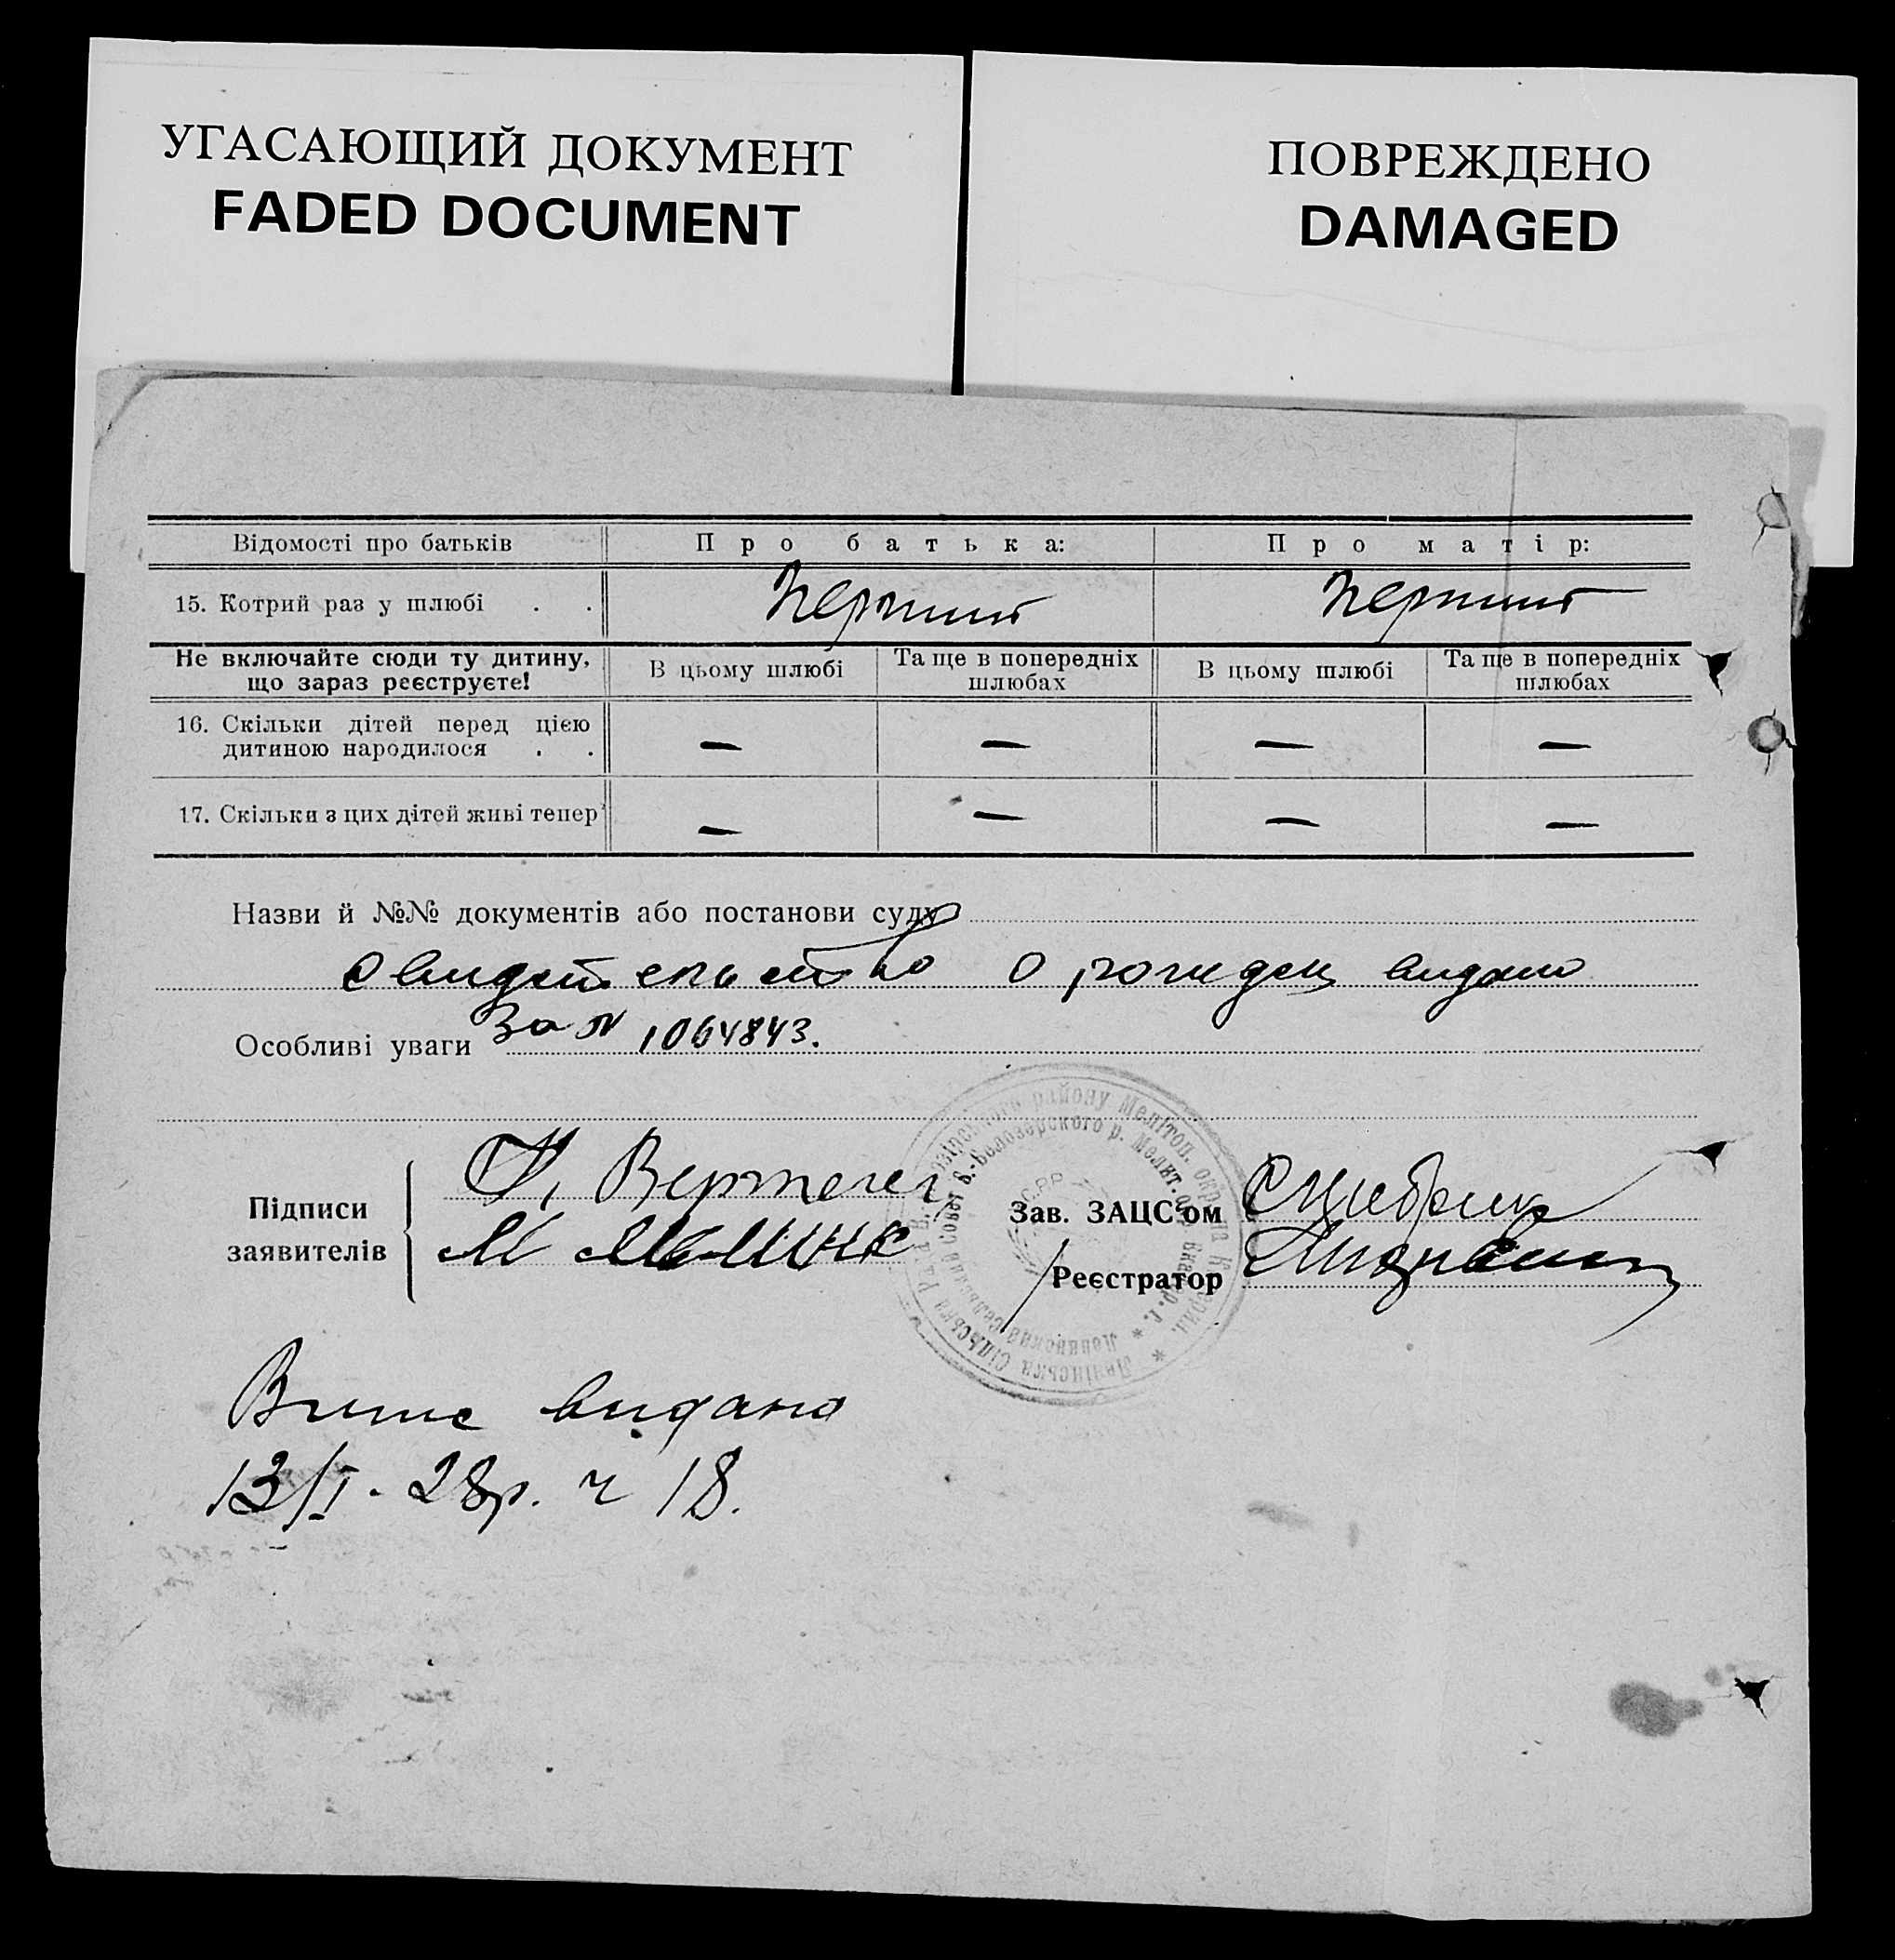 УГАСАЮЩИЙ ДОКУМЕНТ
FADED DOCUMENT
ПОВРЕЖДЕНО
DAMAGED
Відомості про батьків Про батька: Про матір:
15. Котрий раз у шлюбі . . Перший Перший
Не включайте сюди ту дитину, що зараз реєструєте!
В цьому шлюбі Та ще в попередніх шлюбах В цьому шлюбі Та ще в попередніх шлюбах
16. Скільки дітей перед цією дитиною народилося . . — — — —
17. Скільки з цих дітей живі тепер — — — —
Назви й №№ документів або постанови суду
Свидетельство о рожден видано
За № 1064843.
Особливі уваги
Підписи заявителів
М
Зав. ЗАЦС'ом
Реєстратор
району Мелітоп. округи
Б.-Белозерского р. Мелит.
Ленінська Сільська Рада
Ленинский сельский совет
Випис видано
13/I - 28р. ч 18.